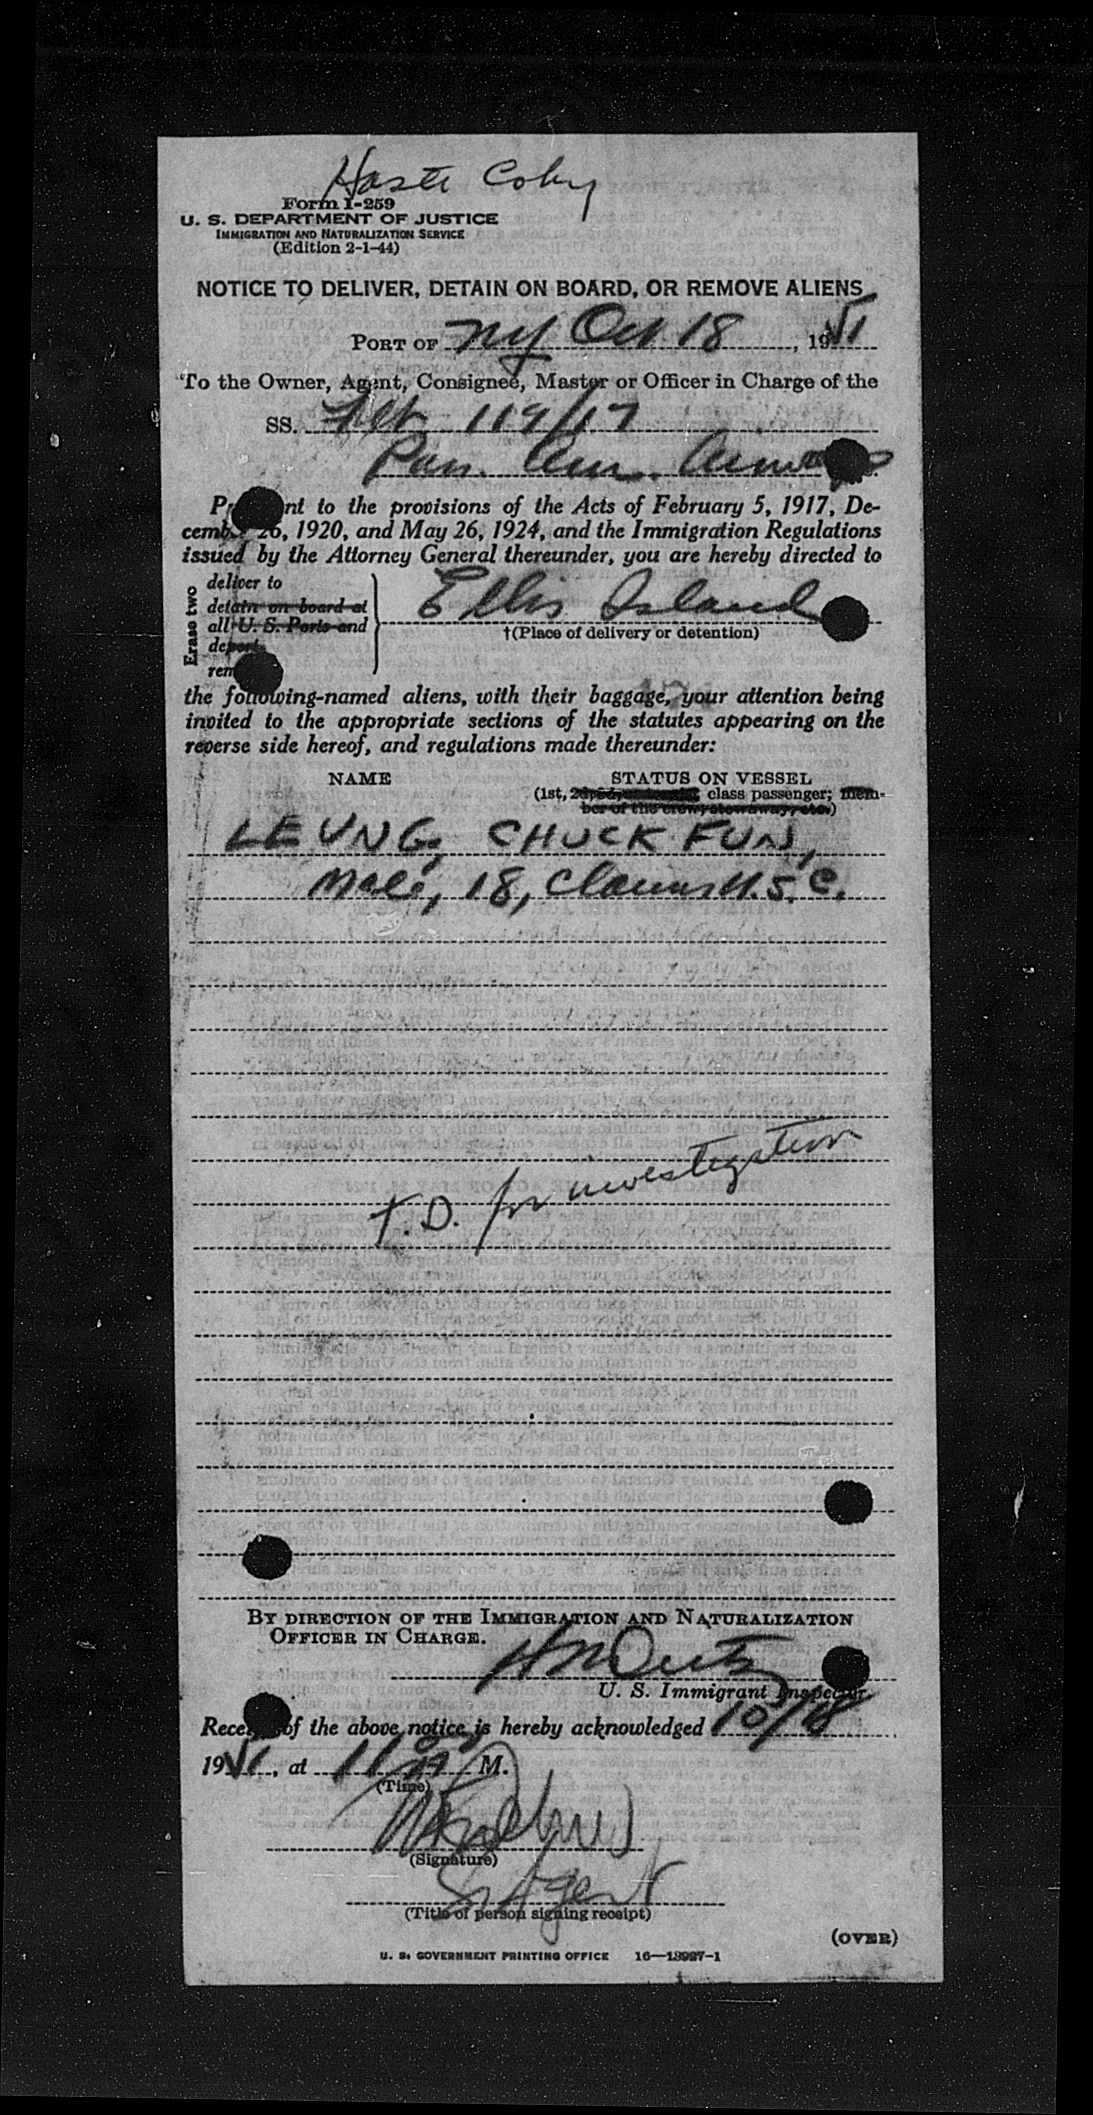 Form I-259
U. S. DEPARTMENT OF JUSTICE
IMMIGRATION AND NATURALIZATION SERVICE
(Edition 2-1-44)
NOTICE TO DELIVER, DETAIN ON BOARD, OR REMOVE ALIENS
PORT OF NY Oct 18, 1951
To the Owner, Agent, Consignee, Master or Officer in Charge of the
SS. Flt 119/17
Pan. Am. Airways
to the provisions of the Acts of February 5, 1917, De-
26, 1920, and May 26, 1924, and the Immigration Regulations
issued by the Attorney General thereunder, you are hereby directed to
Erase two
deliver to
detain on board at
all U. S. Ports and
Ellis Island
†(Place of delivery or detention)
the following-named aliens, with their baggage, your attention being
invited to the appropriate sections of the statutes appearing on the
reverse side hereof, and regulations made thereunder:
NAME STATUS ON VESSEL
(1st, class passenger; mem-
ber of the crew, stowaway, etc.)
LEUNG, CHUCK FUN,
Male, 18, Claims U.S.C.
T.D. for investigation
BY DIRECTION OF THE IMMIGRATION AND NATURALIZATION
OFFICER IN CHARGE.
U. S. Immigrant Inspector.
of the above notice is hereby acknowledged 10/18
1951, at 11 00 A M.
(Time)
(Signature)
Agent
(Title of person signing receipt)
(OVER)
U. S. GOVERNMENT PRINTING OFFICE 16—13997-1